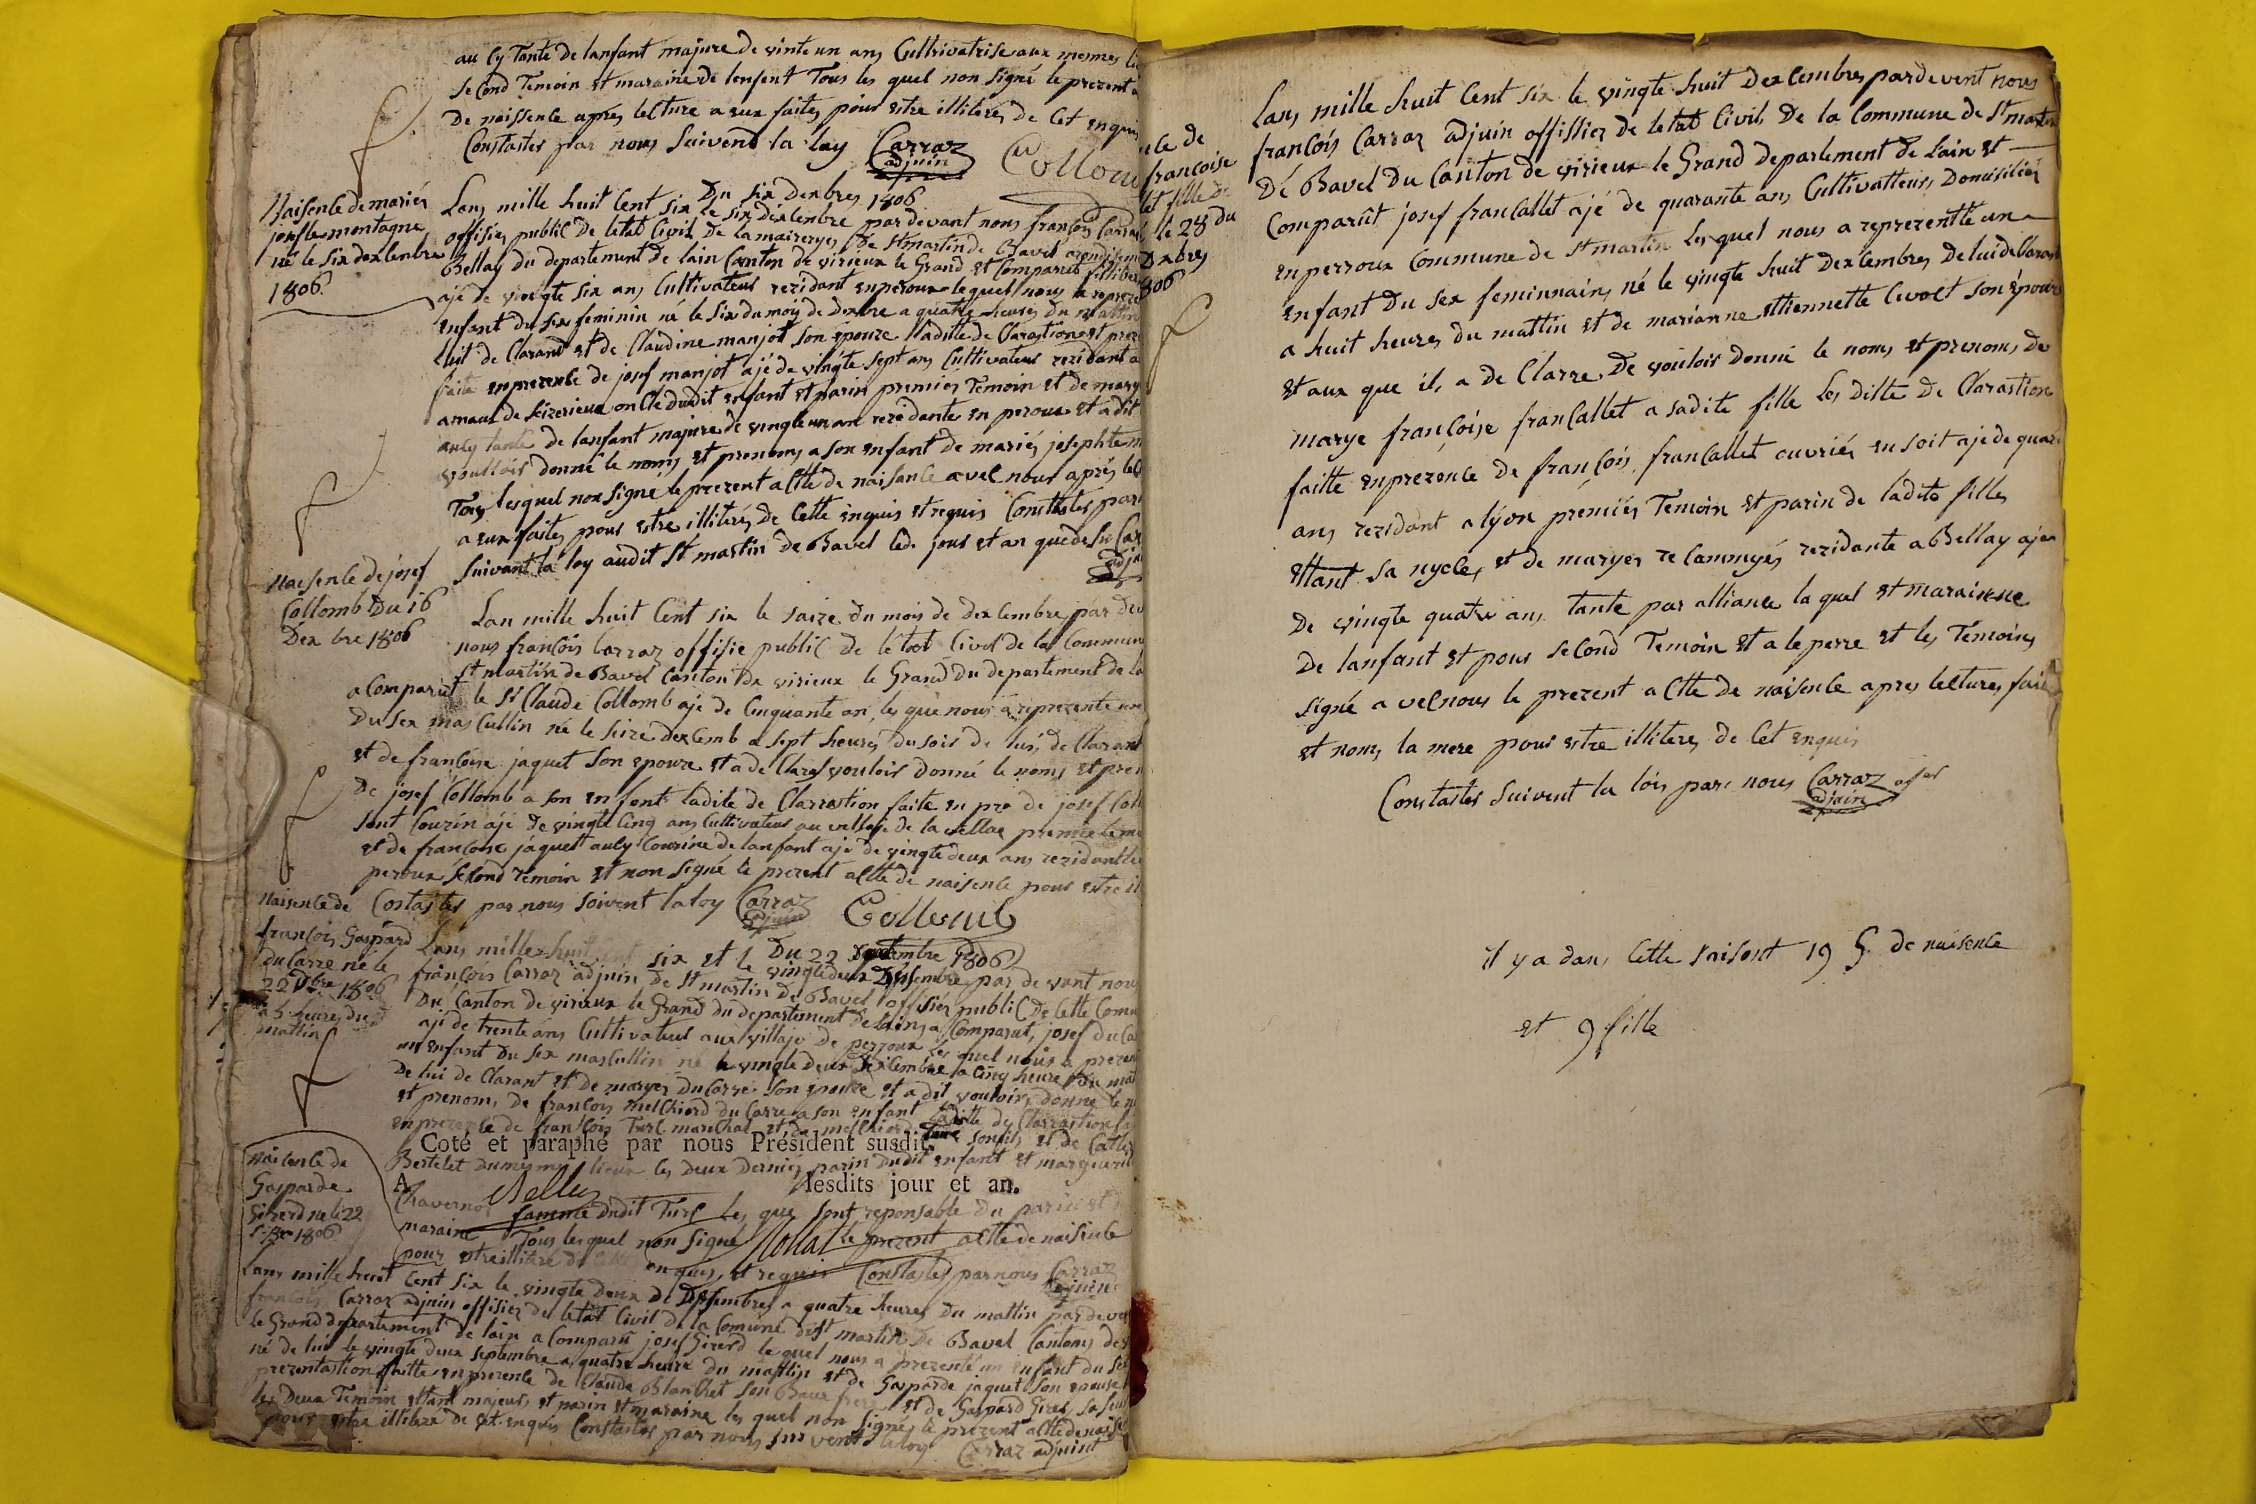 au cy Tante de lanfant majure de vinte un ans Cultivatrise aux memes
second Temoin et maraine de lenfent Tous les quel non signé le prezent
De naissence apres lecture a eux faites pour estre illiterés de Cet enquis
Constaster par nous suivend la loy Carraz
adjuin
Collomb
Du six dexbres 1806
Naisence de mariés
josephte montagne
né le six dexlembre
1806
Lans mille huit Cent six le six déxlembre par devant nous françois Carraz
offisier public de letat Civil de la maireryes de St martin de Bavel arondisem
Bellay du departement de lain Canton de virieux le Grand et Comparut filliber
ajé de vingte six ans Cultivateur rezidant enperoux lequel nous a reprez
enfant du sex feminin né le six du moy de Dexbre a quatre heures du mattin
luit de Clarant et de Claudine manjot son épouze ladille de Clarastion et prez
faite enprezence de josef manjot ajé de vingte sept ans Cultivateur rezidant a
arnaud de seizerieux oncle dudit enfant et parin premier Temoin et de mary
aucy tante de lanfant majure de vingte un an rezedante en peroux et a dit
voulloir donné le noms et prenoms a son enfant de mariés josephte m
Tous lesquel non signé le prezent actte de naisance avec nous aprés lec
a eux faites pour estre illiterés de Cette enquis et requis Constastes par
suivant la loy audit St martin de Bavel led. jour et an que desu Car
adju
Naisence de josef
Collomb Du 16
Dex bre 1806
Lan mille huit Cent six le saize du mois de dexlembre par dev
nous françois Carraz offisie public de letat Civil de la Commune
St martin de Bavel Canton de virieux le Grand du departement de la
a Comparut le Sr Claude Collomb aje de Cinquante an, les que nous a reprezente un
Du sex masCullin né le seize dexlemb a sept heures du soir de lui, de Clarant
et de francoise jaquet son epouze et a de Claré vouloir donné le noms et pren
De josef Collomb a son enfent ladite de Clarrastion faite en pre de josef Coll
sont Couzin ajé de vingte Cinq ans Cultivateur au vellaje de la vellaz premie teme
et de francoise jaquet aucy Couzine de lanfant aje de vingte deux ans rezidantte
peroux second Temoin et non signé le prezent actte de naisence pour estre il
Costastés par nous soivent la loy Carraz
adjuin
Collomb
Du 22 septembre 1806
Naisence de
françois Gaspard
du Carre né le
22 Dbre 1806
a 5 heures du
mattin
Lans mille huit Cent six et le vingte deux Dessembre par de vant nous
françois Carraz adjuin de St martin de Bavel offisier public de Cette Comu
Du Canton de virieux le Grand du departement de lain, a Comparut, josef du Ca
ajé de trente ans Cultivateur aux villaje de perroux les quel nous a prezen
un enfant du sex masCullin né le vingte deux dexlembre a Cinq heure du mat
De lui de Clarant et de maryes du Carre son epouze et a dit vouloir, donné le n
et prenoms de françois melchiord du Carre a son enfant ladite de Clarrastion fa
enprezence de françois Turc marechal et de melchior Turc son fils et de Cather
Coté et paraphé par nous Président susdit.
Bertelet du mesme lieux les deux dernier parin dudit enfant et marguerit
A Belley lesdits jour et an.
Chavernoz famme dudit Turc les que sont reponsable du parin et
maraine Tous lesquel non signé le prezent actte de naisence
pour estre illitere de enquis, et requis Constastes par nous Carraz
adjuin
Mollat
Naisence de
Gasparde
Girerd ne le 22
1806
Lans mille huit Cent six le vingte deux de Dessembres a quatre heures du mattin par dever
françois Carraz adjuin offisier de letat Civil de la Comune dist martin de Bavel Cantons de
le Grand departement de lain a Comparu josef Girerd le quel nous a prezenté un enfant du sex
né de lui le vingte deux septembre a quatre heure du mattin et de Gasparde jaquet son epouse
prezentastion faitte enprezence de Claude Blanchet son Baux frere et de Gaspard Girer, sa seur
les deux Temoin ettant majeurs et parin et maraine les quel non signés le prezent actte de naise
pour estre illiterés de Cet enquis Constastés par nous suivent la loy
Carraz adjuint
françoise
fille de
le 28 du
Dxbres
806
Lans mille huit Cent six le vingte huit Dexlembres pardevent nous
françois Carraz adjuin offissier de letat Civil De la Commune de St martin
Dé Bavel Du Canton de virieux le Grand Departement de Lain et
Comparût josef franCallet ajé de quarante ans Cultivatteurs Domisilies
enperroux Commune de St martin lesquel nous a reprezentte un
enfant Du sex feminnains né le vingte huit Dexlembres De lui deClarant
a huit heures du mattin et de marianne ettiennette Civoct son épouze
et aux que il, a de Clarre De vouloir donné le noms et prenoms de
marye françoise franCallet a sadite fille Les Ditte De Clarastion
faitte enprezence de françois franCallet ouvriés en soit aje de quar
ans rezidant a lyon premiés Temoin et parin de ladite filles
ettant sa nycle, et de maryes re Cammyés rezidante a Bellay ajee
De vingte quatre ans tante par alliance la quel et marainne
De lanfant et pour second Temoin et a le perre et les Temoins
signé a vec nous le prezent actte de naissence apres lectures faite
et noms la mere pour estre illiteres de Cet enquis
Constastés Suivent la lois par nous Carraz
adjuin
il y a dans Cette saisont 19 G. de naisence
et 9 fille